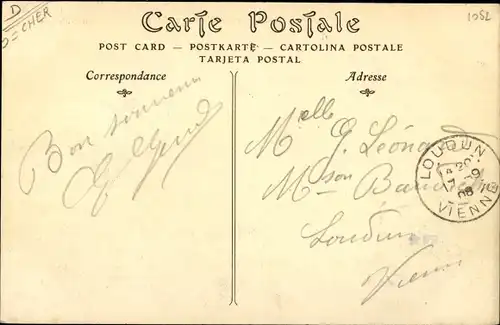 D
D = CHER
1052
Carte Postale
POST CARD — POSTKARTE — CARTOLINA POSTALE
TARJETA POSTAL
Correspondance
Adresse
Bon souvenir
Melle G. Léona
Mson
Loudun
Vienne
LOUDUN
VIENNE